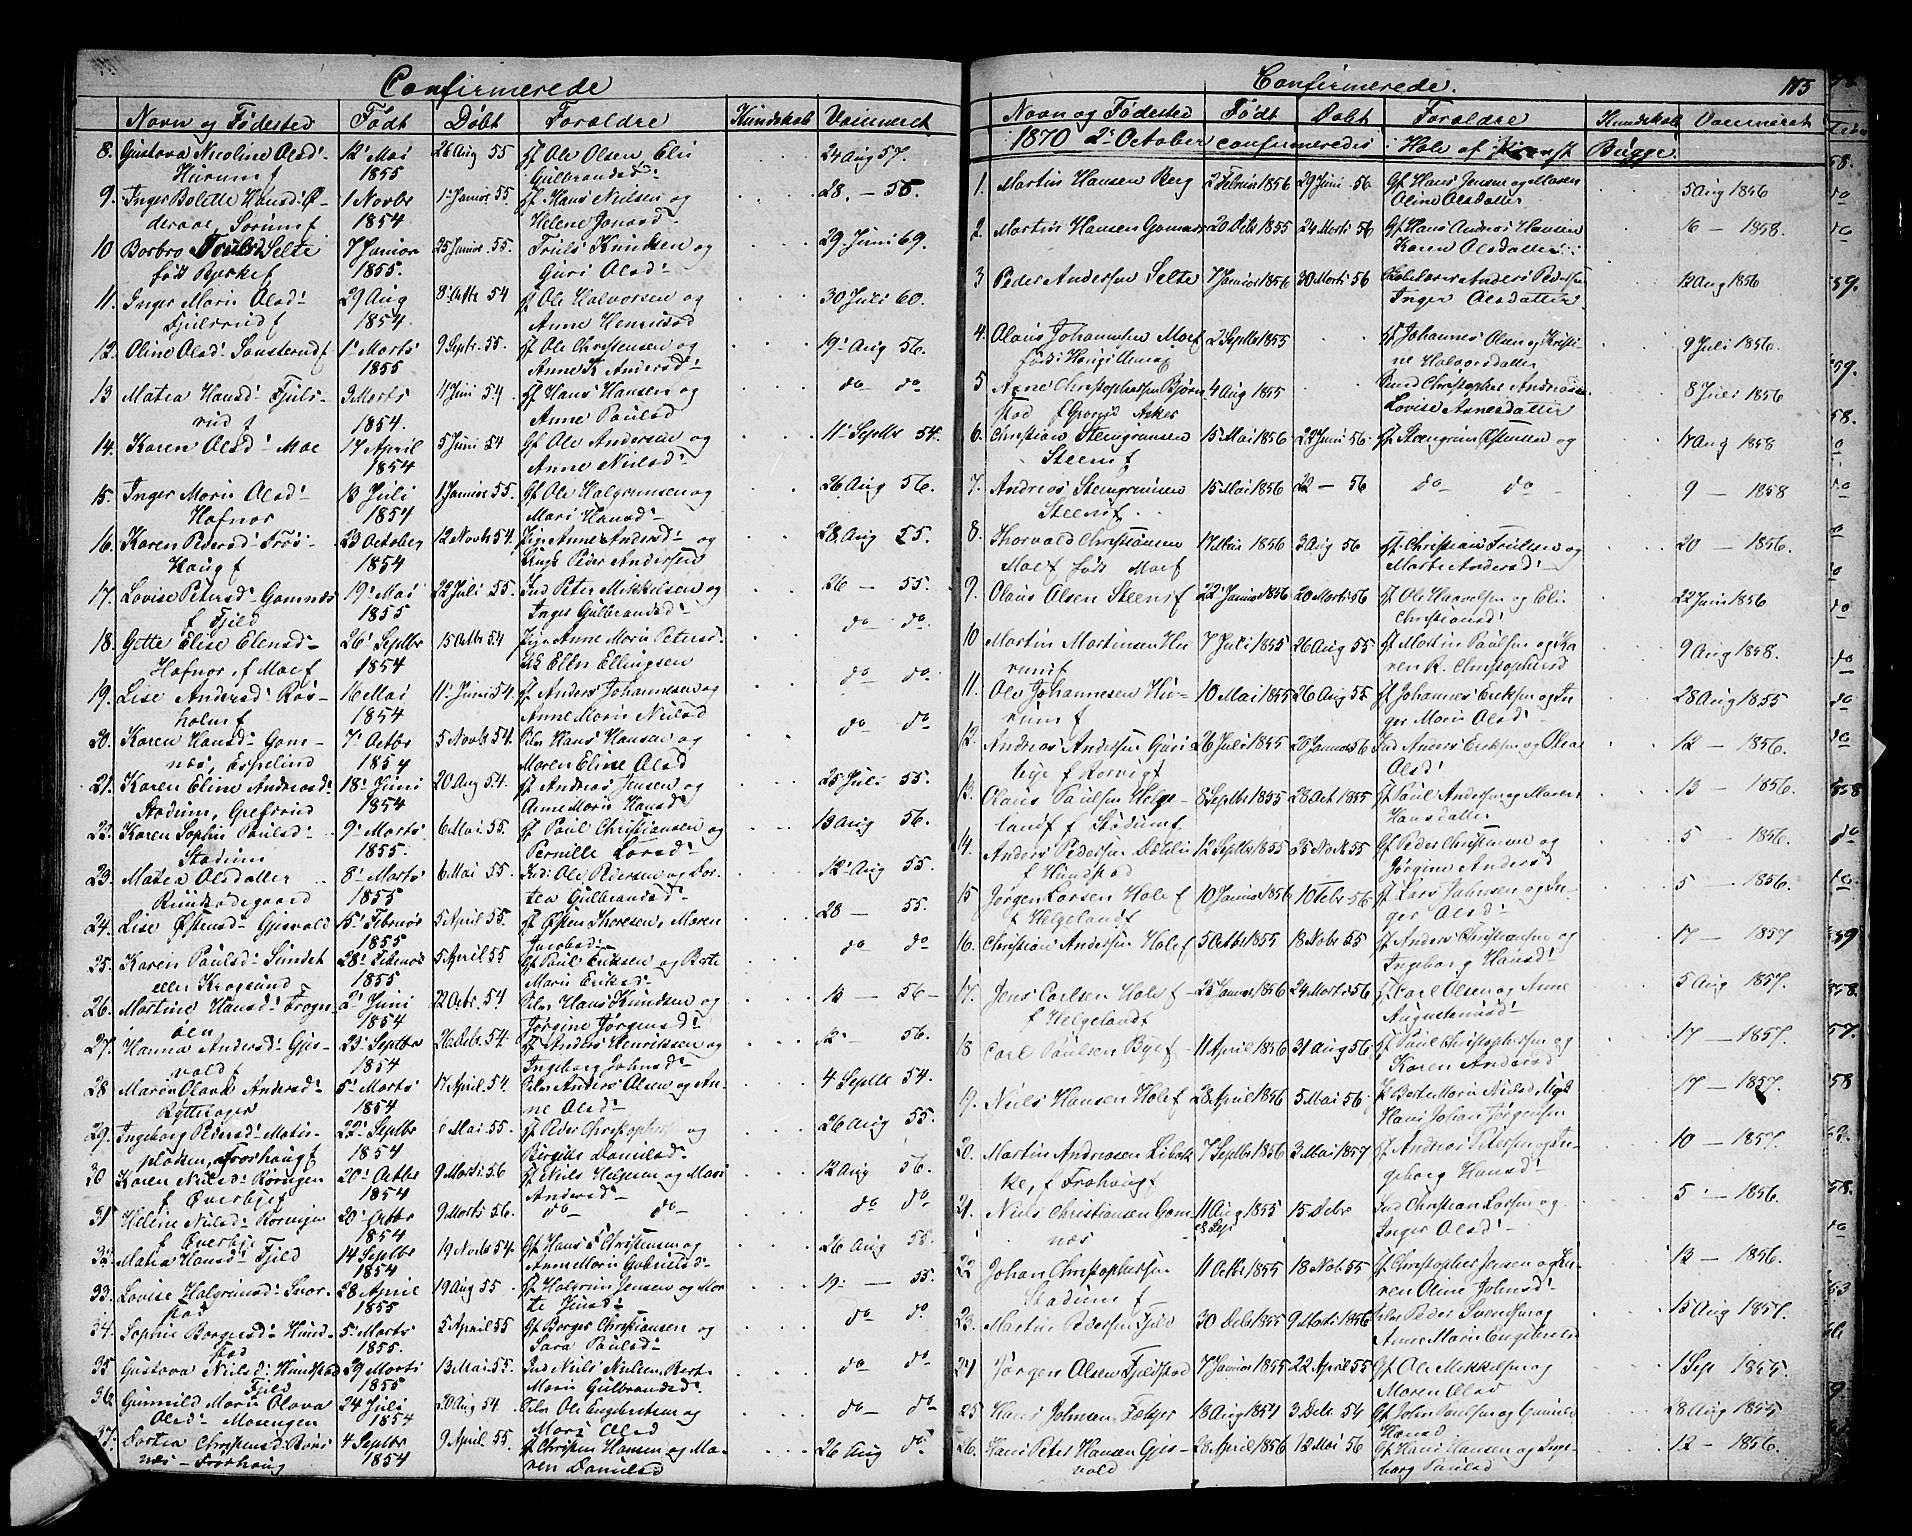 Confirmerede
Navn og Fødested Født Døbt Foræld̈re Kundskab Vaccineret
8. Gustava Nicoline Olsd: 12 Mai 26 Aug 55 gf Ole Olsen, Eli 24 Aug 57.
Hurum f 1855 Gulbrandsd:
9. Inger Bolette Hansd: 1 Novbr 1 Januar 55 gf Hans Nielsen og 28. — 55.
1854 Helene
10 Borbro Trulsd: Selte 7 Januar 25 Januar 55. Truls Knudsen og 29 Juni 69.
født Bjerke f 1855. Guri Olsd:
11. Inger Marie Olsd: 29 Aug 8 Octbr 54 gf Ole Halvorsen og 30 Juli 60.
Fjulsrud f 1854. Anne
12. Oline Olsd: 1 Marts 9 Septr. 55. gf Ole Christensen og 19 Aug 56.
1855 Anne K Andersd:
13 Matea Hansd: Fjuls- 3 Marts 4 Juni 54 gf Hans Hansen og do do
rud f 1854. Anne Paulsd
14. Karen Olsd: Moe 17 April 5 Juni 54 gf Ole Andersen og 11 Septbr 54.
1854 Anne Nielsd:
15. Inger Marie Olsd: 13 Juli 1 Januar 55. gf Ole Halgrimsen og 26 Aug 56.
Hafnor 1854 Mari Hansd:
16. Karen Pedersd: Frøs- 23 October 12 Novbr 54. Pige Anne Andersd: og 28 Aug 55.
Haug f 1854 Peder Andersen
17. Lovise Petersd: Gomnæs 19 Mai 22 Juli 55. Ind Peter Mikkelsen og 26 — 55.
f Fjeld 1855 Inger Gulbrandsd:
18. Gette Elise Elensd: 26 Septbr 15 Octbr 54 Pige Anne Marie Petersd: do do
Hafnor, f Moe f 1854 Ellingsen
19. Lise Andersd: Ros- 16 Mai 11 Juni 54. gf Anders Johannesen og do do
holm f 1854 Anne Marie Nielsd
20. Karen Hansd: Gom- 7 Octbr 5 Novbr 54. Hans Hansen og do do
næs, Espelind 1854 Maren Eline Olsd
21. Karen Eline Andreasd: 18 Juni 20 Aug 54. gf Andreas Jensen og 25 Juli 55.
Stadum, Grefsrud 1854 Anne Marie Hansd:
22. Karen Sophie Paulsd: 9 Marts 6 Mai 55. gf Paul Christiansen og 13 Aug 56.
Stadum 1855. Pernille Larsd:
23. Matea Olsdatter 8 Marts 6 Mai 55. Ind: Ole Pedersen og Dor- 12 Aug 55.
1855 tea Gulbrandsd:
24. Lise Østensd: Gjesvold 15 Februar 5 April 55. gf Østen Thoresen, Maren 28 — 55.
1855 Jacobsd:
25. Karen Paulsd: Sundet 28 Februar 5 April 55 gf Paul Eriksen og Berte do do
eller Krogsund 1855 Marie Eriksd:
26. Martine Hansd: Frogn- 2 Juni 22 Octbr. 54. Hans Knudsen og 13 — 56 —
øen 1854 Jørgine Jørgensd:
27. Hanna Andersd: Gjes- 23 Septbr 26 Debr. 54. gf Anders Henriksen og 12 — 56.
vold f 1854 Ingeborg Johnsd:
28 Maren Olava Andersd: 5 Marts 17 April 54. Anders Olsen og An- 4 Septbr 54.
Rytterager 1854 ne Olsd:
29. Ingeborg Pedersd: 22 Septbr Mai 55. gf Peder Christophersen og 26 Aug 55.
pladsen, Froshaug f 1854 Birgitte Danielsd:
30 Karen Nielsd: 20 Octbr 9 Marts 56 gf Niels Helgesen og Mari 12 Aug 56.
f Øverbye f 1854 Andersd:
31 Helene Nielsd: 20 Octbr 9 Marts 56. do do do do
f Øverbye 1854
32 Matea Hansd: Fjeld 14 Septbr 19 Novbr 54. gf Hans Christensen og 26 Aug 55.
1854 Anne Marie Gabrielsd:
33. Lovise Halgrimsd: Snor- 28 April 19 Aug 55 gf Halgrim Jensen og Mar- 19 — 55.
stad 1855 te Jensd:
34. Sophie Borgersd: Hund- 5 Marts 5 April 55 gf Borger Christiansen og do do
stad 1855. Sara Paulsd:
35 Gustava Nielsd: Hundstad 29 Marts 13 Mai 55. Ind Niels Nielsen, Berte do do
Fjeld 1855 Marie Gulbrandsd:
36. Gunnild Marie Olava 24 Juli 20 Aug 54. Ole Engebretsen og do do
Olsd: Mosengen 1854 Mari Olsd
37. Dortea Christensd: 4 Septbr 9 April 55. gf Christen Hansen og Ma- 26 Aug do
næs — Froshaug 1854 ren Danielsd
Confirmerede. 175
Navn og Fødested Født Døbt Forældre Kundskab Vaccineret
1870 2 October confirmeredes i Hole af Bugge
1. Martin Hansen Berg 2 Februar 1856 29 Juni 56 Gf Hans Jensen og Maren 5 Aug 1856
Oline Olsdatter
2. Martin Hansen Gomnæs 20 Debr 1855 24 Marts 56 Gf Hans Andreas Hansen 16 — 1858.
Karen Olsdatter
3 Peder Andersen Selte 7 Januar 1856 30 Marts 56 Anders Pedersen 12 Aug 1856
Inger Olsdatter
4. Olaus Johannesen Moe f 2 Septbr 1855 gf Johannes Olsen og Kristi- 9 Juli 1856.
ne Halvorsdatter
5 Arne Christophersen Bjørn- 4 Aug 1855 Ind Christopher Andreasen 8 Juli 1856
stad f Asker Lovise Arnesdatter
6. Christian Steengrimsen 15 Mai 1856 22 Juni 56 gf Steengrim Østensen og 17 Aug 1858
Steen f
7. Andreas Steengrimsen 15 Mai 1856 22 — 56 do do 9 — 1858
Steens f.
8. Thorvald Christiansen 17 Mai 1856 3 Aug 56 gf. Christian Trulsen og 20 — 1856.
Moe f født Moe f Marte Andersd:
9. Olaus Olsen Steens f 22 Januar 1856 20 Marts 56 gf Ole og Eli 22 Juni 1856
Christiansd:
10 Martin Martinsen Hu- 7 Juli 1855 26 Aug 55 gf Martin Paulsen og Ka- 9 Aug 1858.
rum f ren K. Christophersd
11. Ole Johannesen Hu- 10 Mai 1855 26 Aug 55 gf Johannes Eriksen og In- 28 Aug 1855
rum f ger Marie Olsd:
12. Andreas Andersen Guri- 26 Juli 1855 20 Januar 56 Ind Anders Eriksen og Olea 12 — 1856.
bye f Olsd:
13. Olaus Paulsen Helge- 8 Septbr 1855 28 Oct 1855 gf Paul Andersen og Maren 13 — 1856.
land f f Stadum f. Hansdatter
14. Anders Pedersen Dæhlie 12 Septbr 1855 25 Novbr 55 gf Peder Christensen og 5 — 1856.
f Hundstad Jørgine Andersd
15 Jørgen Larsen Hole f 10 Januar 1856 10 Febr 56 gf Lars Johnsen og In- 5 — 1856.
f Helgeland f ger Olsd:
16. Christian Andersen Hole f 5 Octbr 1855 18 Nobr 55 gf Anders Christiansen og 17 — 1857
Ingeborg Hansd:
17. Jens Carlsen Hole f 25 Januar 1856 24 Marts 56 gf. Carl Olsen og Anne 5 Aug 1857.
f Helgeland f Augustinusd:
18 Carl Paulsen Bye f 11 April 1856 31 Aug 56 gf Paul Christophersen og 17 — 1857.
Karen Andersd
19. Niels Hansen Hole f 28 April 1856 5 Mai 56 Berte Marie Nielsd, Ungk 17 — 1857.
Hans Johan Jørgensen
20. Martin Andreasen Libak- 7 Septbr 1856 3 Mai 1857 gf Andreas Petersen og In- 10 — 1857.
ke, f Frohaug f geborg Hansd:
21. Niels Christiansen Gom- 11 Aug 1855 15 Debr Ind Christian Larsen og 5 — 1856.
næs Inger Olsd:
22 Johan Christophersen 11 Octbr 1855 18 Nobr 55 gf Christopher Jensen og Ka- 13 — 1856.
Stadum f ren Oline Johnsd:
23. Martin Pedersen Fjeld 30 Debr 1855 9 Marts 1856 Peder Svendsen og 15 Aug 1857.
Anne Marie Engebretsd
24 Jørgen Olsen Fjeldstad 7 Januar 1855 22 April 55 gf Ole Mikkelsen og 1 Sep 1855.
Maren Olsd
25 Hans Johnsen 18 Aug 1854 3 Debr 54 gf John Paulsen og Gunild 28 Aug 1855
Hansd
26. Hans Peter Hansen Gjes- 28 April 1856 12 Mai 56 gf Hans Hansen og Inge- 12 — 1856.
vold borg Paulsd